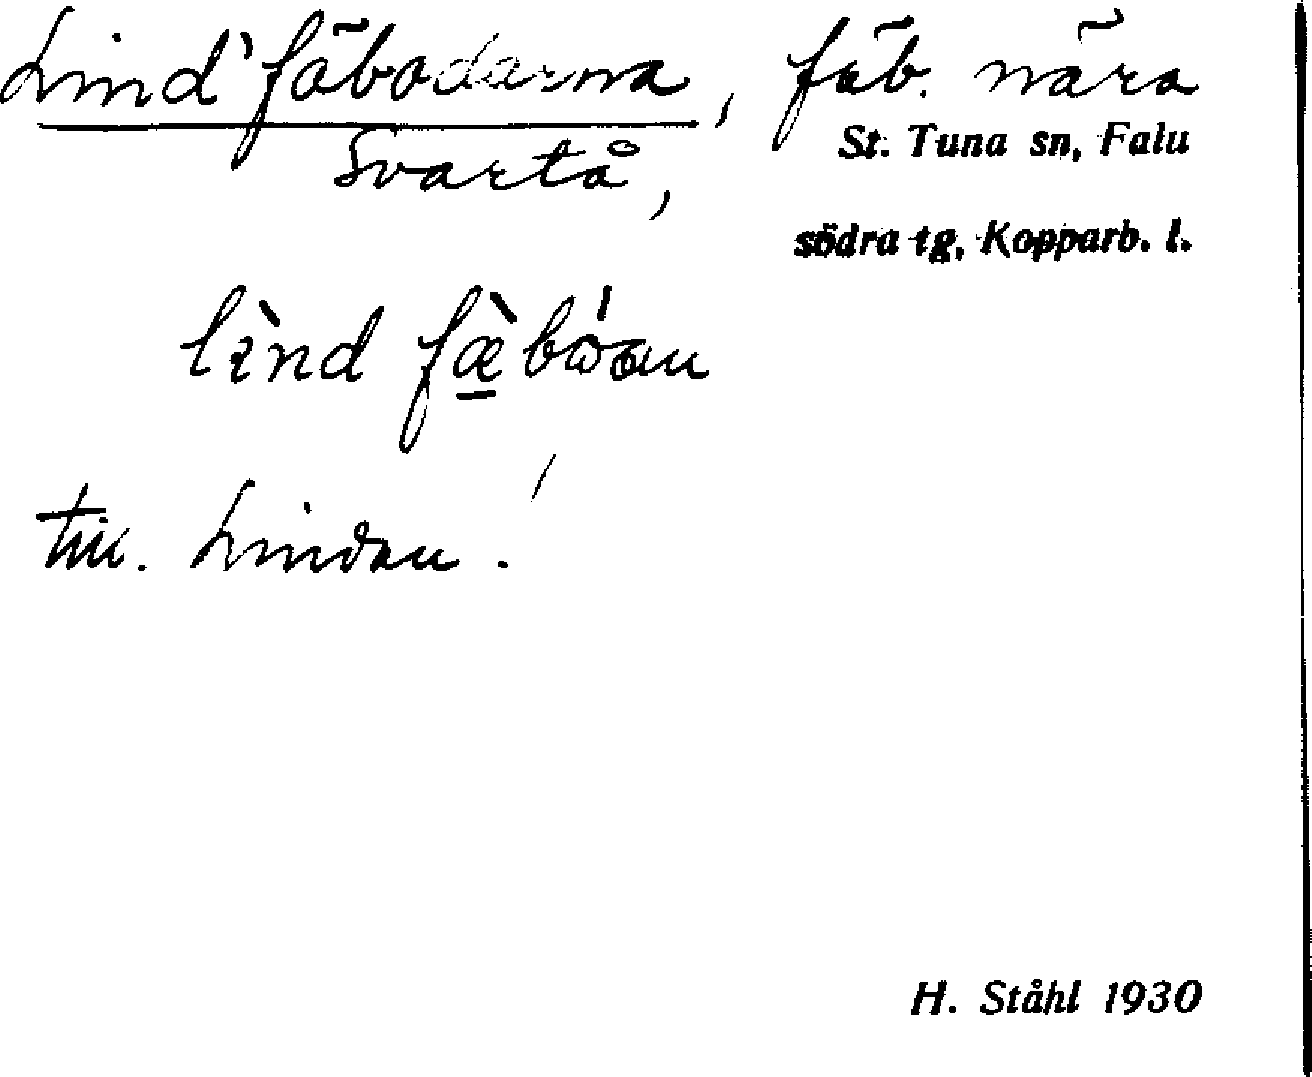 Lind'fäbodarna, fäb. nära
Svartå,
St. Tuna sn, Falu
södra tg, Kopparb. l.
lìnd fæ̀bω'an
till. Lindan.
H. Ståhl 1930